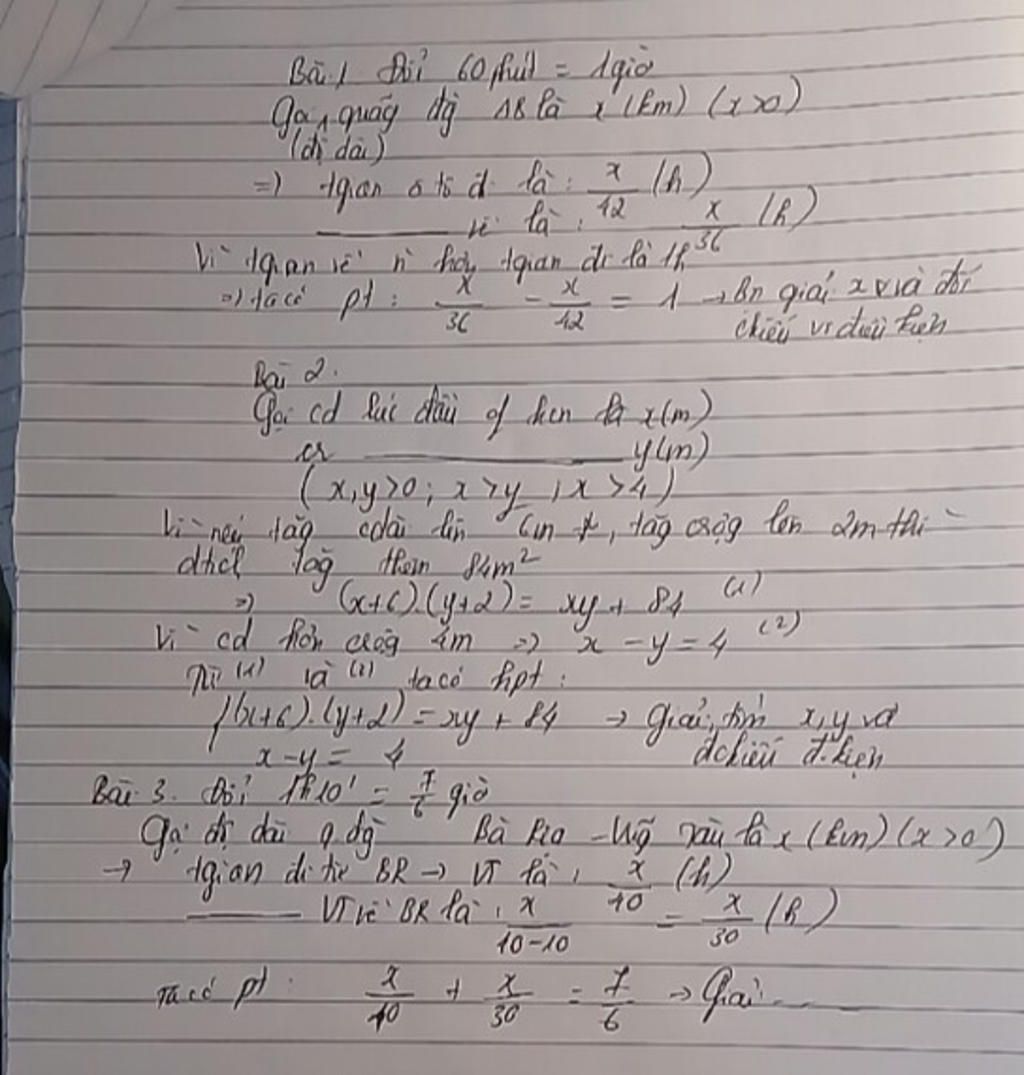 Bài 1 Đổi 60 phút = 1 giờ
Gọi quãg đg AB là x (km) (x>0)
(độ dài)
=) tgian ô tô đi là : x/42 (h)
_____ về là : x/36 (h)
Vì tgian về n` hơn tgian đi là 1h
=) ta có pt : x/36 - x/42 = 1 → Bn giải x và đối
chiếu vs điều kiện
Bài 2.
Gọi cd lúc đầu of hcn là x(m)
cr _____ y(m)
(x,y>0 ; x>y , x>4)
Vì nếu tăg cdài lên 6m, tăg crộg lên 2m thì
dthcn tăg thêm 84m²
=) (x+6).(y+2) = xy + 84 (1)
Vì cd hơn crộg 4m =) x - y = 4 (2)
Từ (1) và (2) ta có hpt :
{(x+6).(y+2) = xy + 84 → Giải, tìm x,y và
x-y = 4 đchiếu đ.kiện
Bài 3. Đổi 1h10' = 7/6 giờ
Gọi độ dài q.đg Bà Rịa - Vũg Tàu là x (km) (x>0)
→ tgian đi từ BR → VT là : x/40 (h)
_____ VT về BR là : x/40-10 = x/30 (h)
Ta có pt : x/40 + x/30 = 7/6 → Giải